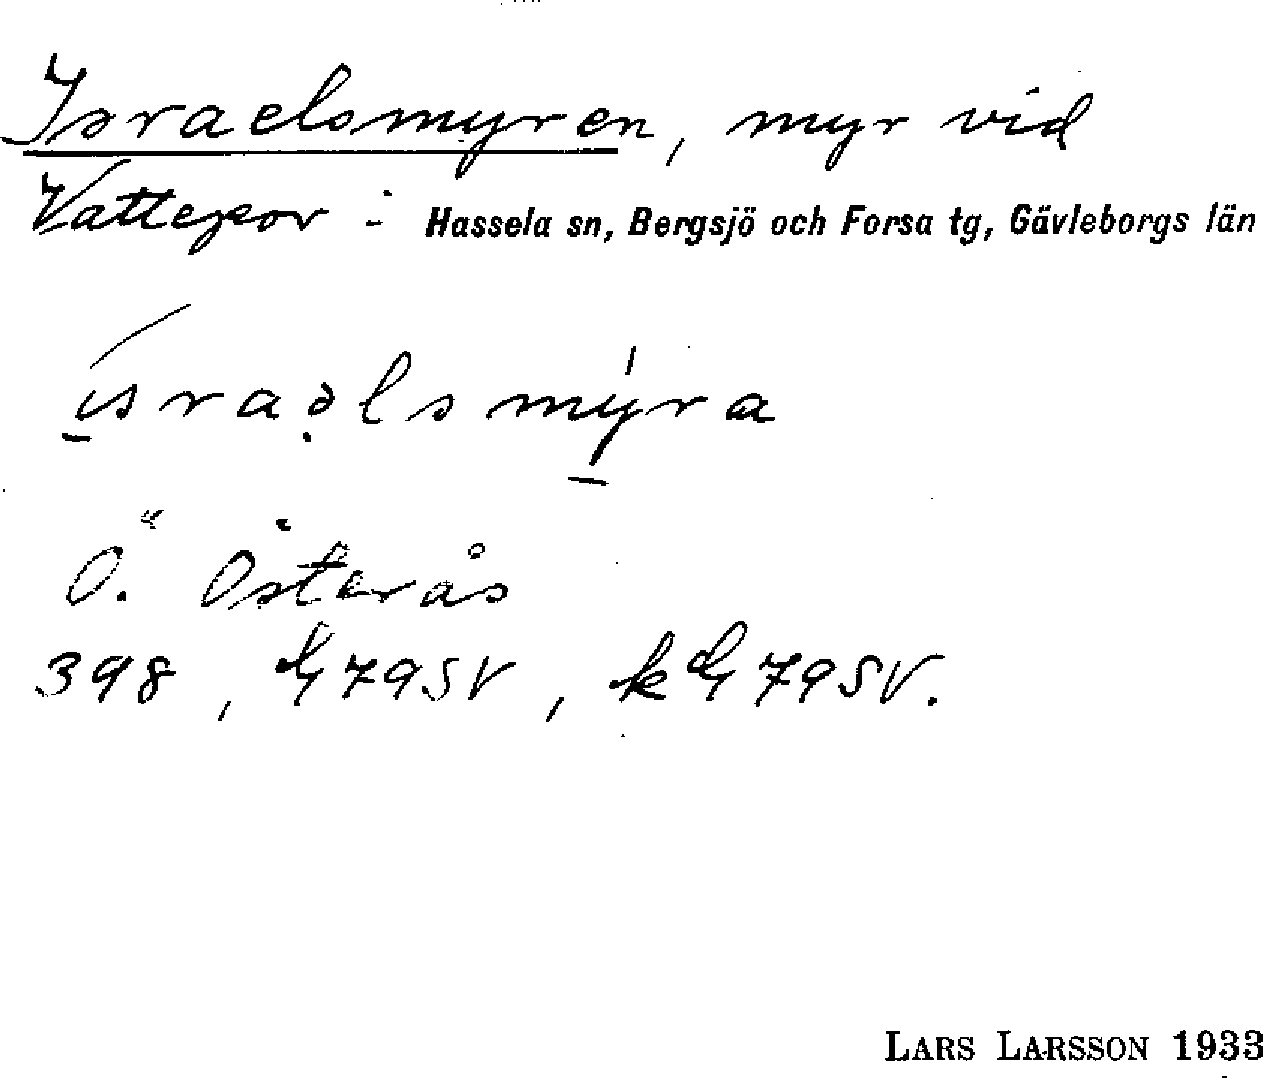 Israelsmyren, myr vid
Hassela sn, Bergsjö och Forsa tg, Gävleborgs län
israəlsmýra
Ö. Österås
398, 79SV, k 79SV.
LARS LARSSON 1933